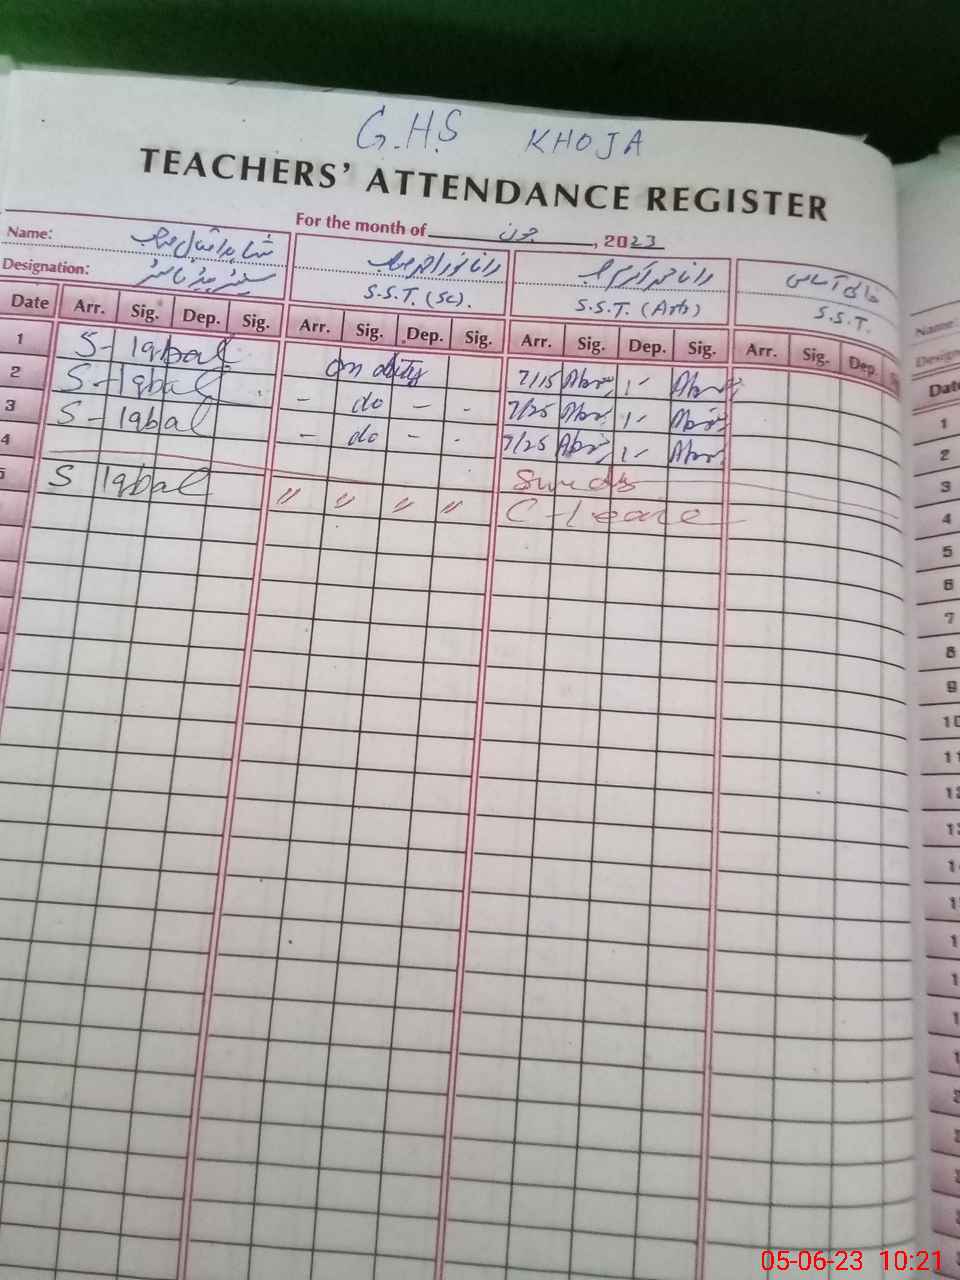 G.H.S KHOJA
TEACHERS' ATTENDANCE REGISTER
For the month of جون, 2023
Name: شاہد اقبال صاحب رانا محمد اکرم صاحب خالی آسامی
Designation: سینئر ہیڈ ماسٹر S.S.T. (Sc). S.S.T. (Arts) S.S.T.
Date Arr. Sig. Dep. Sig. Arr. Sig. Dep. Sig. Arr. Sig. Dep. Sig. Arr. Sig. Dep.
1 S-Iqbal On duty 7/15 1-
2 S-Iqbal - do - - 7/25 1-
3 S-Iqbal - do - - 7/25 1-
4 Sunday
5 S Iqbal " " " " C-leave
Name:
Date
1
2
3
4
5
6
7
8
9
10
11
12
13
05-06-23 10:21